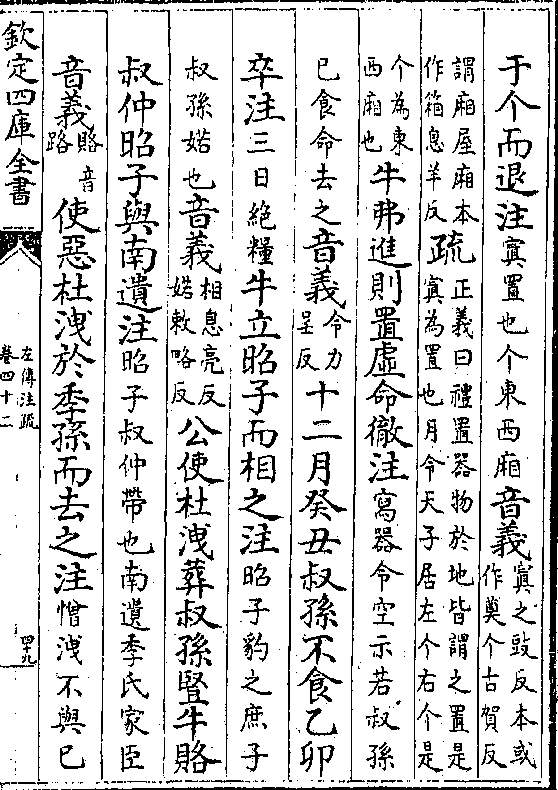 于个而退注寘置也个東西廂音義寘之豉反本或作奠个古賀反
謂廂屋廂本作箱息羊反疏正義曰禮置器物於地皆謂之置是寘為置也月令天子居左个右个是
个為東西廂也牛弗進則置虛命徹注寫器令空示若叔孫
已食命去之音義令力呈反十二月癸丑叔孫不食乙卯
卒注三日絶糧牛立昭子而相之注昭子豹之庶子
叔孫婼也音義相息亮反婼敕略反公使杜洩葬叔孫豎牛賂
叔仲昭子與南遺注昭子叔仲帶也南遺季氏家臣
音義賂音路使惡杜洩於季孫而去之注憎洩不與已
欽定四庫全書
左傳注疏
卷四十二
四十九